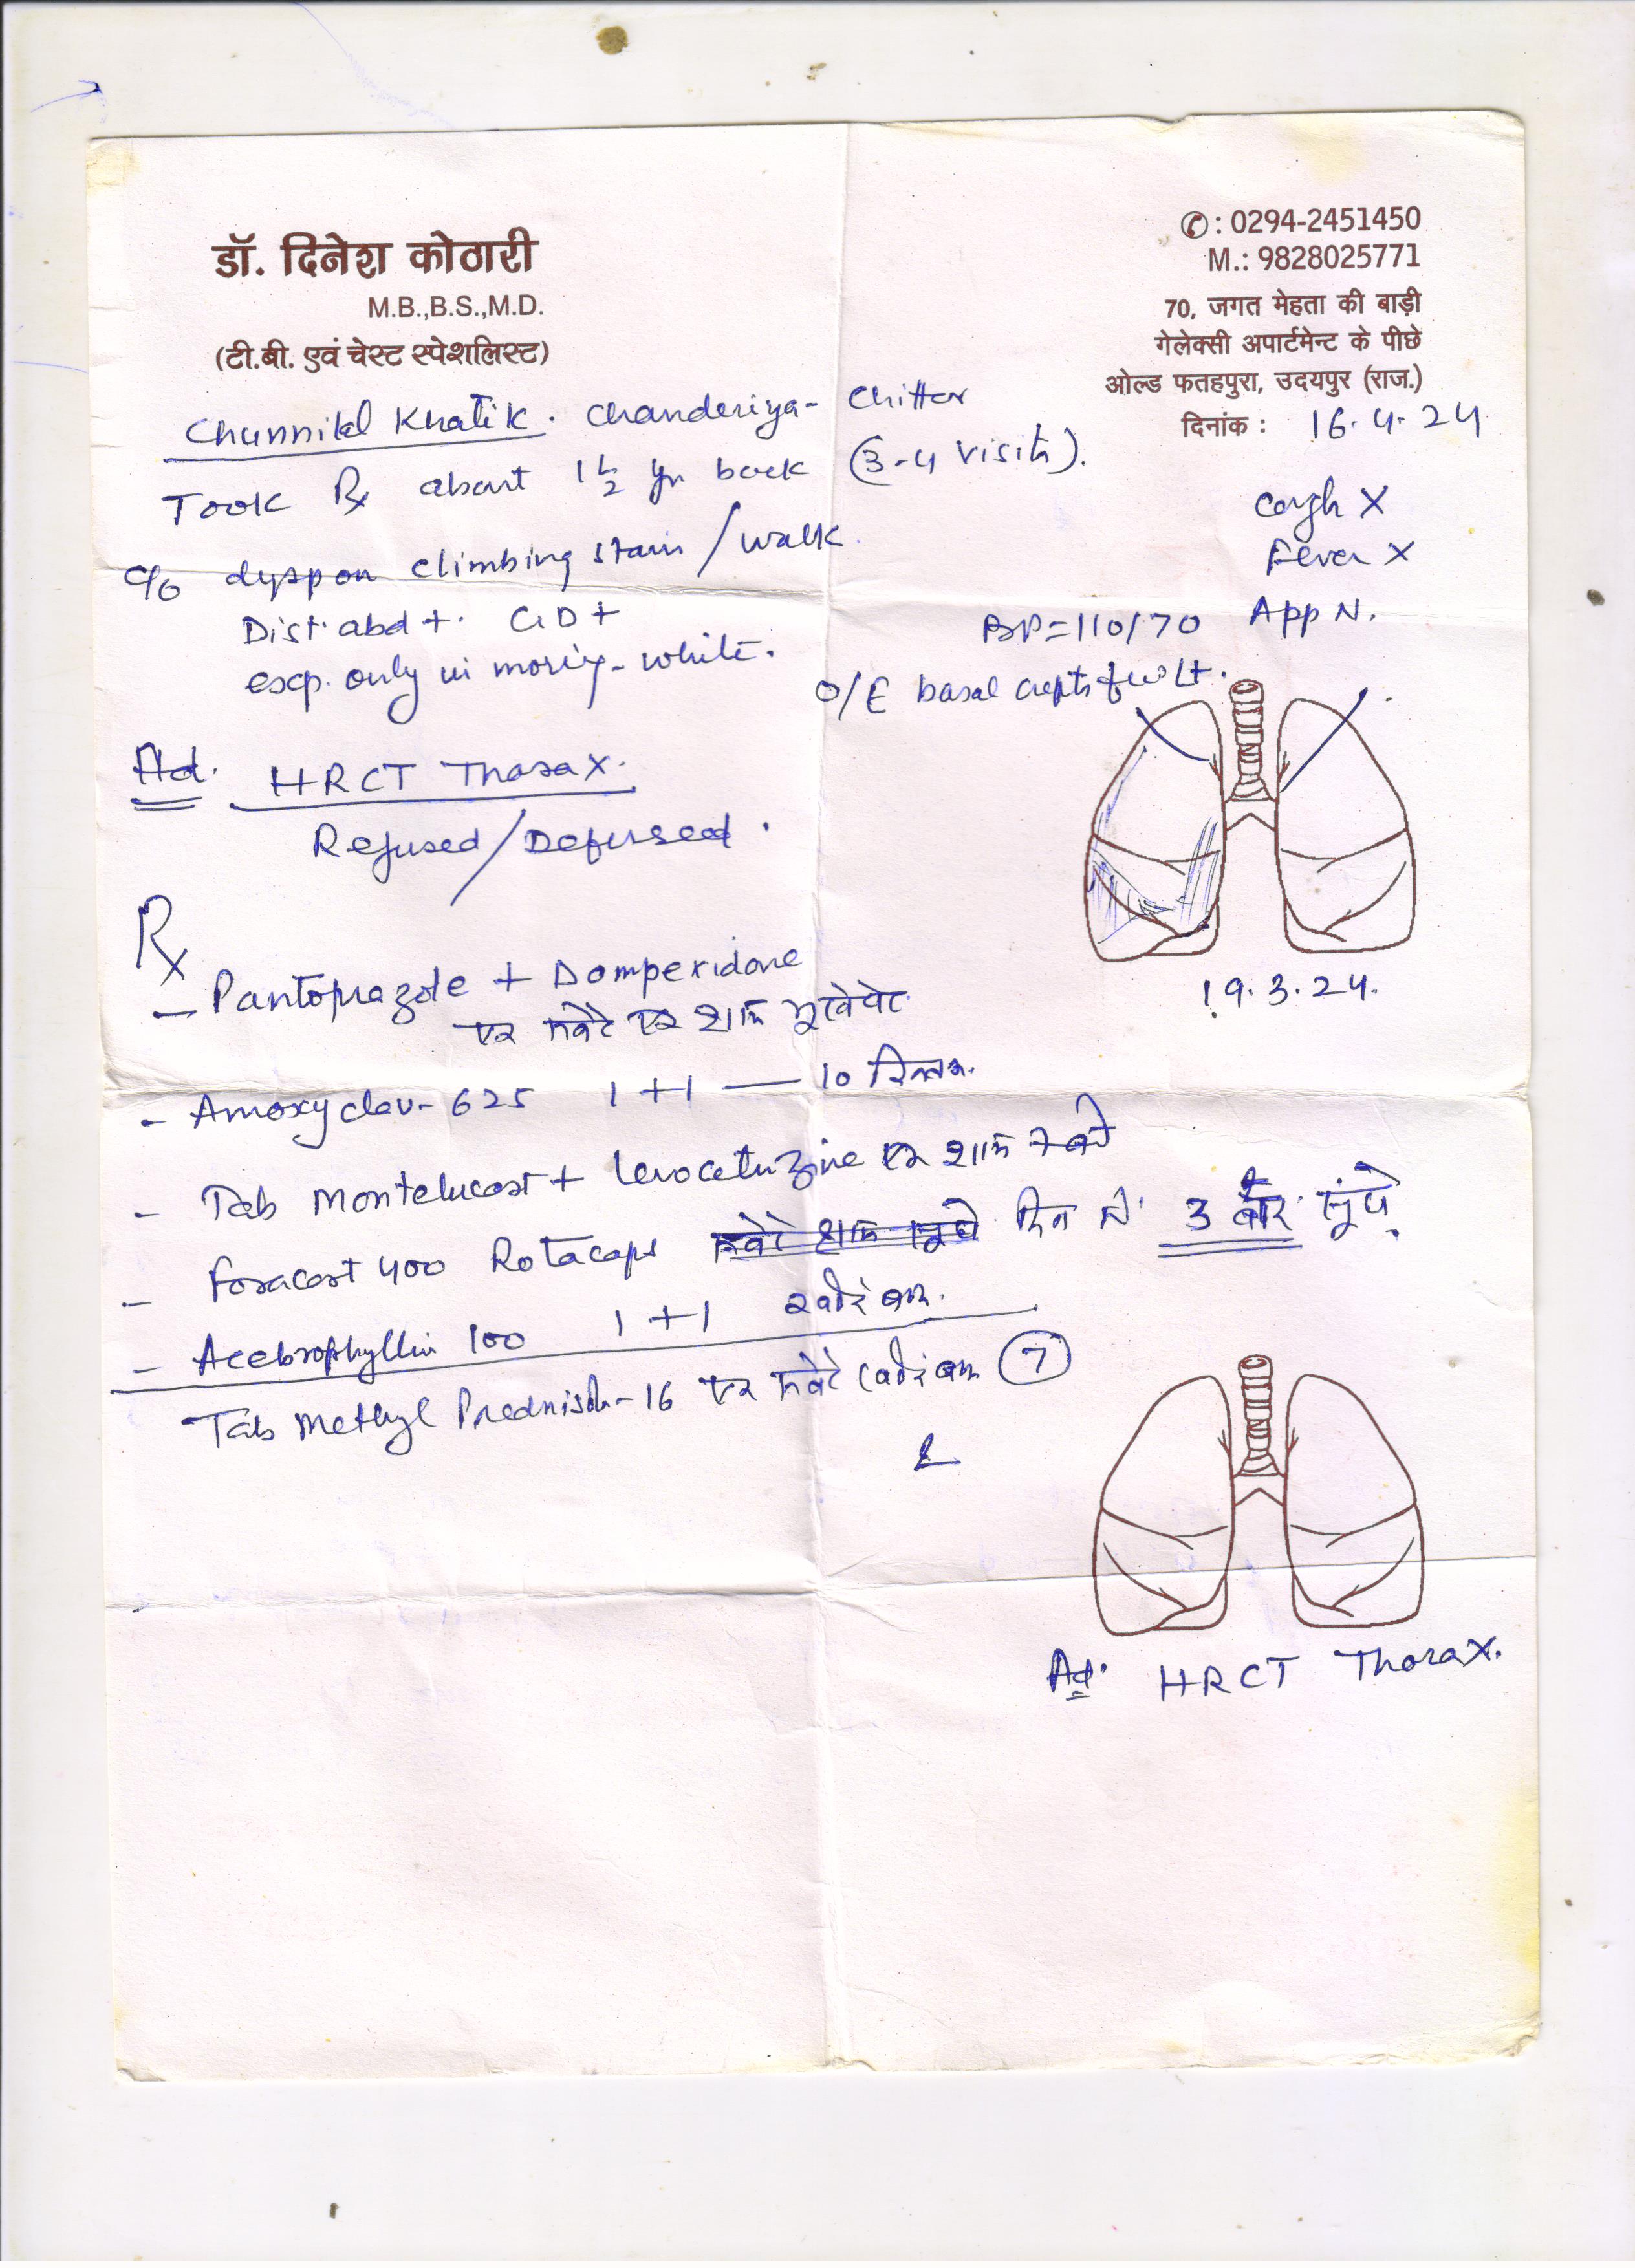 डॉ. दिनेश कोठारी
M.B.,B.S.,M.D.
(टी.बी. एवं चेस्ट स्पेशलिस्ट)
✆: 0294-2451450
M.: 9828025771
70, जगत मेहता की बाड़ी
गेलेक्सी अपार्टमेन्ट के पीछे
ओल्ड फतहपुरा, उदयपुर (राज.)
दिनांक : 16.4.24
Chunnilal Khatik. Chanderiya- Chittor
Took Rx about 1½ yr back (3-4 visits).
Cough X
Fever X
App N.
C/o dysp on climbing stairs / walk.
Dist. abd +. GD +
exp. only in morning - white.
BP=110/70
O/E basal crepts
Ad. HRCT Thorax.
Refused/Deferred.
19.3.24.
Rx
- Pantoprazole + Domperidone
एक सवेरे एक शाम भूखे पेट
- Amoxyclav- 625 1+1 — 10 दिन तक.
- Tab Montelucast + Levocetrizine एक शाम को
- Foracort 400 Rotacaps सवेरे शाम सूंघे दिन में 3 बार सूंघे.
- Acebrophyllin 100 1+1
Tab Methyl Prednisolo-16 एक सवेरे (7)
Ad. HRCT Thorax.